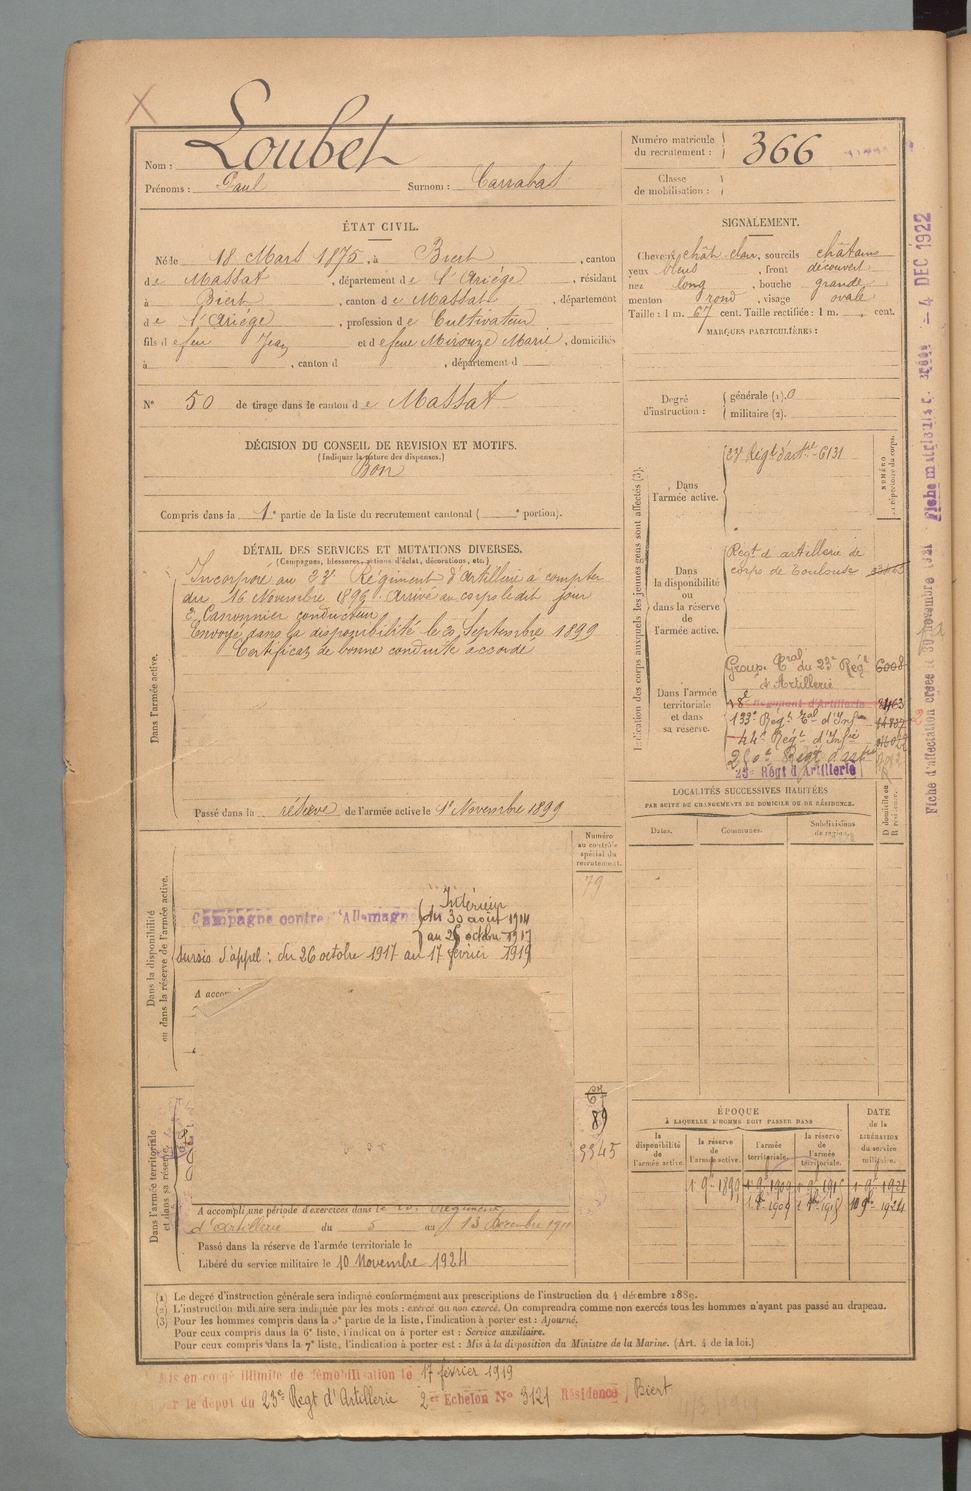 Nom : Loubet
Prénoms : Paul Surnom : Carrabat
Numéro matricule
du recrutement : 366
Classe
de mobilisation :
ÉTAT CIVIL.
Né le 18 Mars 1875, à Biert, canton
de Massat, département de l'Ariége, résidant
à Biert, canton de Massat, département
de l'Ariége, profession de Cultivateur
fils de feu Jean et de feue Mirouze Marie, domiciliés
à , canton d , département d
N° 50 de tirage dans le canton de Massat
DÉCISION DU CONSEIL DE REVISION ET MOTIFS.
(Indiquer la nature des dispenses.)
Bon
Compris dans la 1e partie de la liste du recrutement cantonal ( e portion).
SIGNALEMENT.
Cheveux chât clair, sourcils châtains
yeux bleus, front découvert
nez long, bouche grande
menton rond, visage ovale
Taille : 1 m. 67 cent. Taille rectifiée : 1 m. cent.
MARQUES PARTICULIÈRES :
Degré
d'instruction :
générale (1). 0
militaire (2).
DÉTAIL DES SERVICES ET MUTATIONS DIVERSES.
(Campagnes, blessures, actions d'éclat, décorations, etc.)
Dans l'armée active.
Incorporé au 23e Régiment d'Artillerie à compter
du 16 Novembre 1896. Arrivé au corps le dit jour
2e Canonnier conducteur
Envoyé dans la disponibilité le 20 Septembre 1899
Certificat de bonne conduite accordé
Passé dans la réserve de l'armée active le 1er Novembre 1899
Indication des corps auxquels les jeunes gens sont affectés (3).
NUMÉRO
au répertoire du corps.
Dans
l'armée active.
23e Régt d'artie 6131
Dans
la disponibilité
ou
dans la réserve de
l'armée active.
Régt d'artillerie de
corps de Toulouse
Dans l'armée
territoriale
et dans
sa réserve.
Group. Tal du 23e Régt
d'Artillerie
6008
18e Régiment d'Artillerie
133e Régt Tal d'Infie
44e Régt d'Infie
23e Régt d'Artillerie
LOCALITÉS SUCCESSIVES HABITÉES
PAR SUITE DE CHANGEMENTS DE DOMICILE OU DE RÉSIDENCE.
Dates. Communes. Subdivisions
de région.
D domicile ou
R résidence.
Numéro
au contrôle
spécial du
recrutement.
79
Dans la disponibilité
ou dans la réserve de l'armée active.
Campagne contre l'Allemagne
Intérieur
du 30 août 1914
au 25 octobre 1917
Sursis d'appel : du 26 octobre 1917 au 17 février 1919
A accom
89
5545
Dans l'armée territoriale
et dans sa réserve.
A accompli une période d'exercices dans le 23e Régiment
d'Artillerie du 5 au 13 Décembre 1911
Passé dans la réserve de l'armée territoriale le
Libéré du service militaire le 10 Novembre 1924
ÉPOQUE
À LAQUELLE L'HOMME DOIT PASSER DANS
DATE
de la
LIBÉRATION
du service
militaire.
la
disponibilité
de
l'armée active.
la réserve
de
l'armée active.
l'armée
territoriale.
la réserve
de
l'armée
territoriale.
1 9e 1899 1 9e 1909 1 9e 1915 1 9e 1921
1 9e 1909 1 9e 1915 10 9e 1924
(1) Le degré d'instruction générale sera indiqué conformément aux prescriptions de l'instruction du 4 décembre 1889.
(2) L'instruction militaire sera indiquée par les mots : exercé ou non exercé. On comprendra comme non exercés tous les hommes n'ayant pas passé au drapeau.
(3) Pour les hommes compris dans la 5e partie de la liste, l'indication à porter est : Ajourné.
Pour ceux compris dans la 6e liste, l'indication à porter est : Service auxiliaire.
Pour ceux compris dans la 7e liste, l'indication à porter est : Mis à la disposition du Ministre de la Marine. (Art. 4 de la loi.)
Mis en congé illimité de démobilisation le 17 février 1919
par le dépôt du 23e Régt d'Artillerie 2e Echelon N° 3121 Résidence Biert
Fiche d'affectation créée le 30 novembre 1921 Fiche matricule c. - 4 DEC 1922